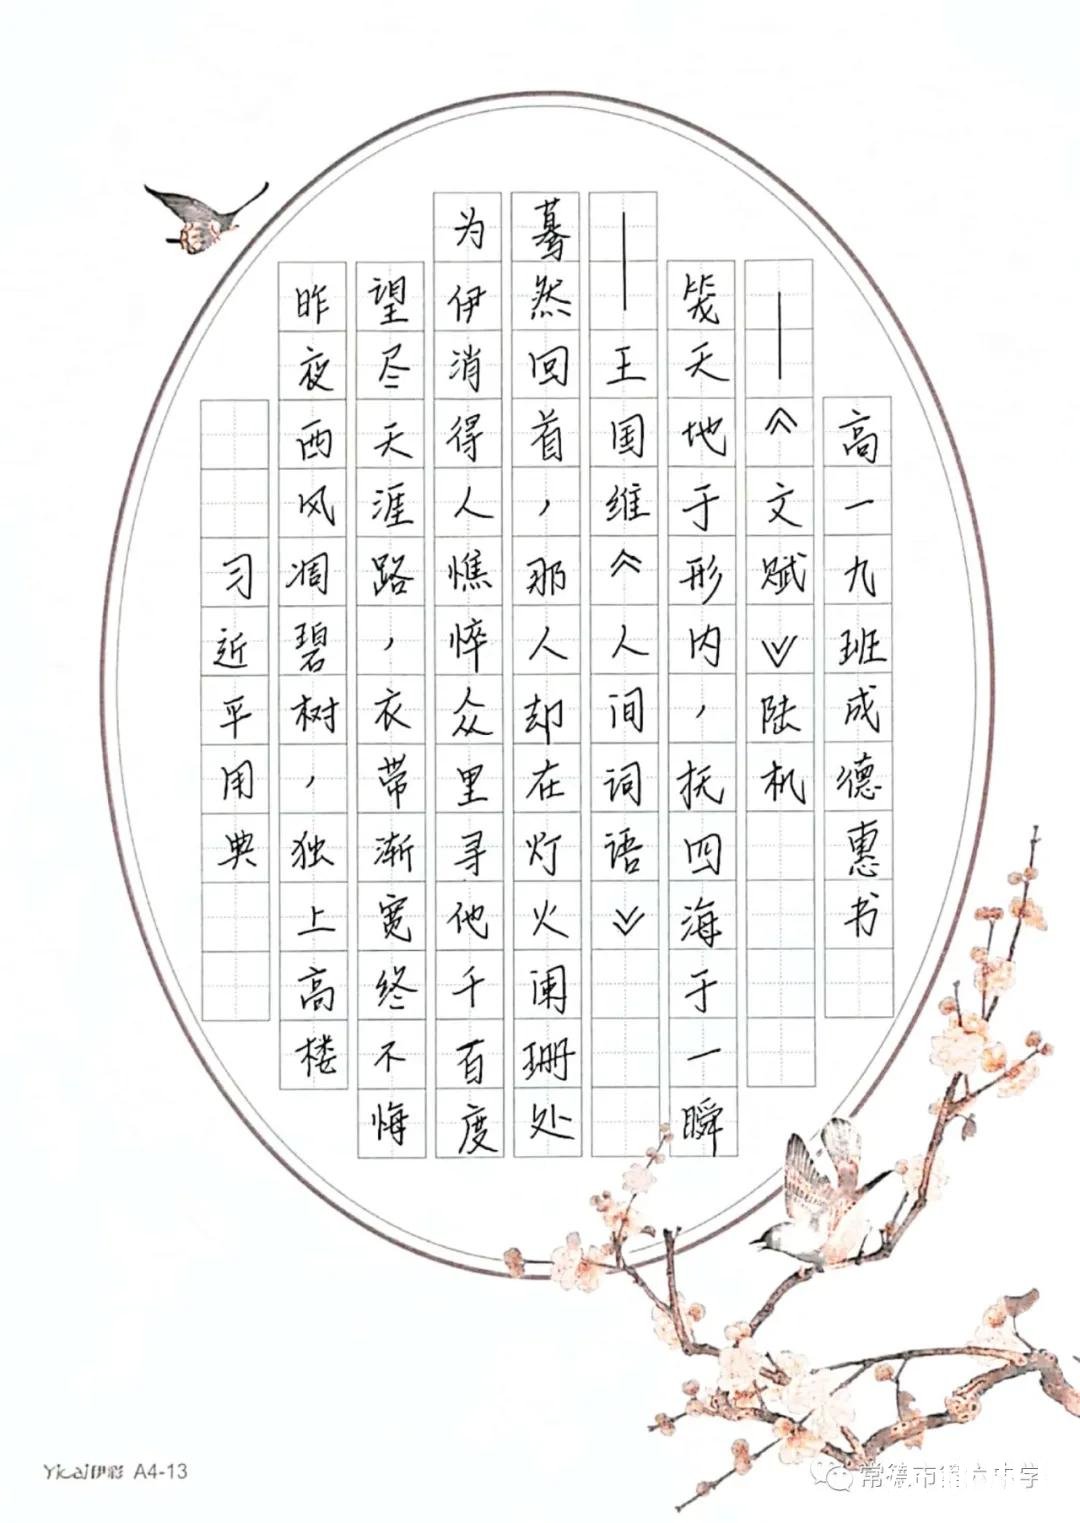 习近平用典
昨夜西风凋碧树，独上高楼
望尽天涯路，衣带渐宽终不悔
为伊消得人憔悴众里寻他千百度
蓦然回首，那人却在灯火阑珊处
——王国维《人间词语》
笼天地于形内，抚四海于一瞬
——《文赋》陆机
高一九班成德惠书
Yicai伊彩 A4-13
常德市中学